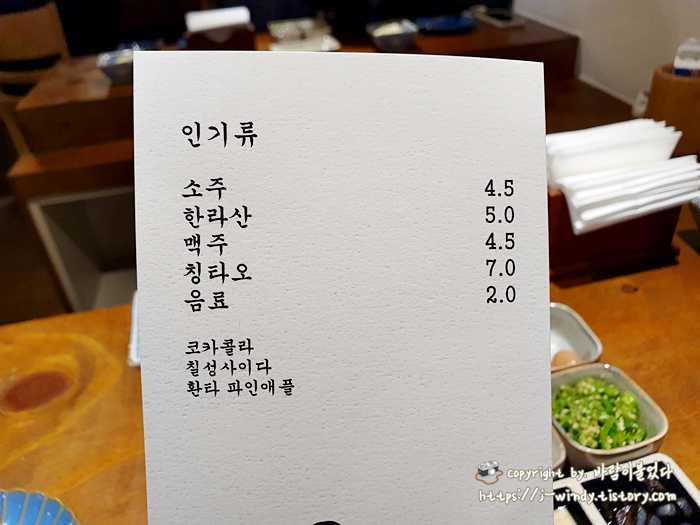 인기류
소주 4.5
한라산 5.0
맥주 4.5
칭타오 7.0
음료 2.0
코카콜라
칠성사이다
환타 파인애플
copyright by. 바람이불었다
https://j-windy.tistory.com